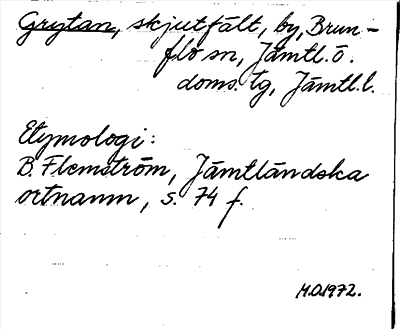 Grytan, skjutfält, by, Brun-
flo sn, Jämtl. ö.
doms. tg, Jämtl. l.
Etymologi:
B. Flemström, Jämtländska
ortnamn, s. 74 f.
M.O.1972.